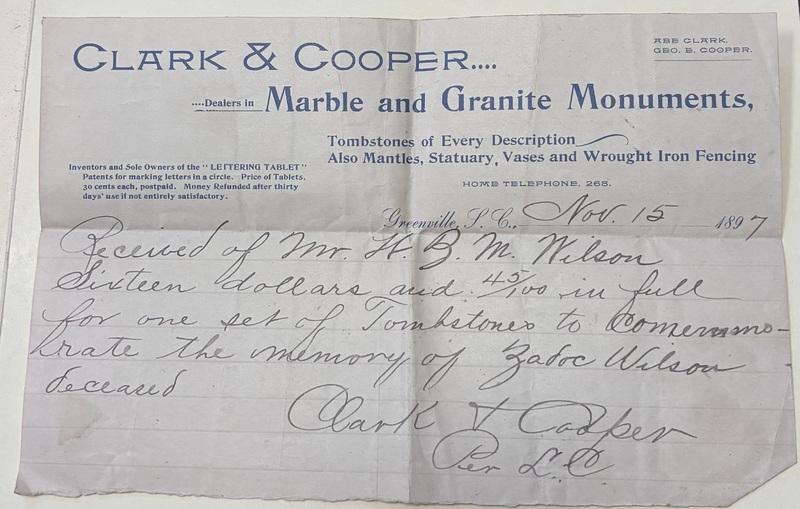 CLARK & COOPER....
ABE CLARK.
GEO. B. COOPER.
....Dealers in Marble and Granite Monuments,
Tombstones of Every Description
Also Mantles, Statuary, Vases and Wrought Iron Fencing
Inventors and Sole Owners of the "LETTERING TABLET"
Patents for marking letters in a circle. Price of Tablets,
30 cents each, postpaid. Money Refunded after thirty
days' use if not entirely satisfactory.
HOME TELEPHONE, 265.
Greenville, S. C., Nov. 15 1897
Received of Mr. H. B. M. Wilson
Sixteen dollars and 45/100 in full
for one set of Tombstones to Comemmo-
rate the memory of Zadoc Wilson
deceased
Clark & Cooper
Per L. C.